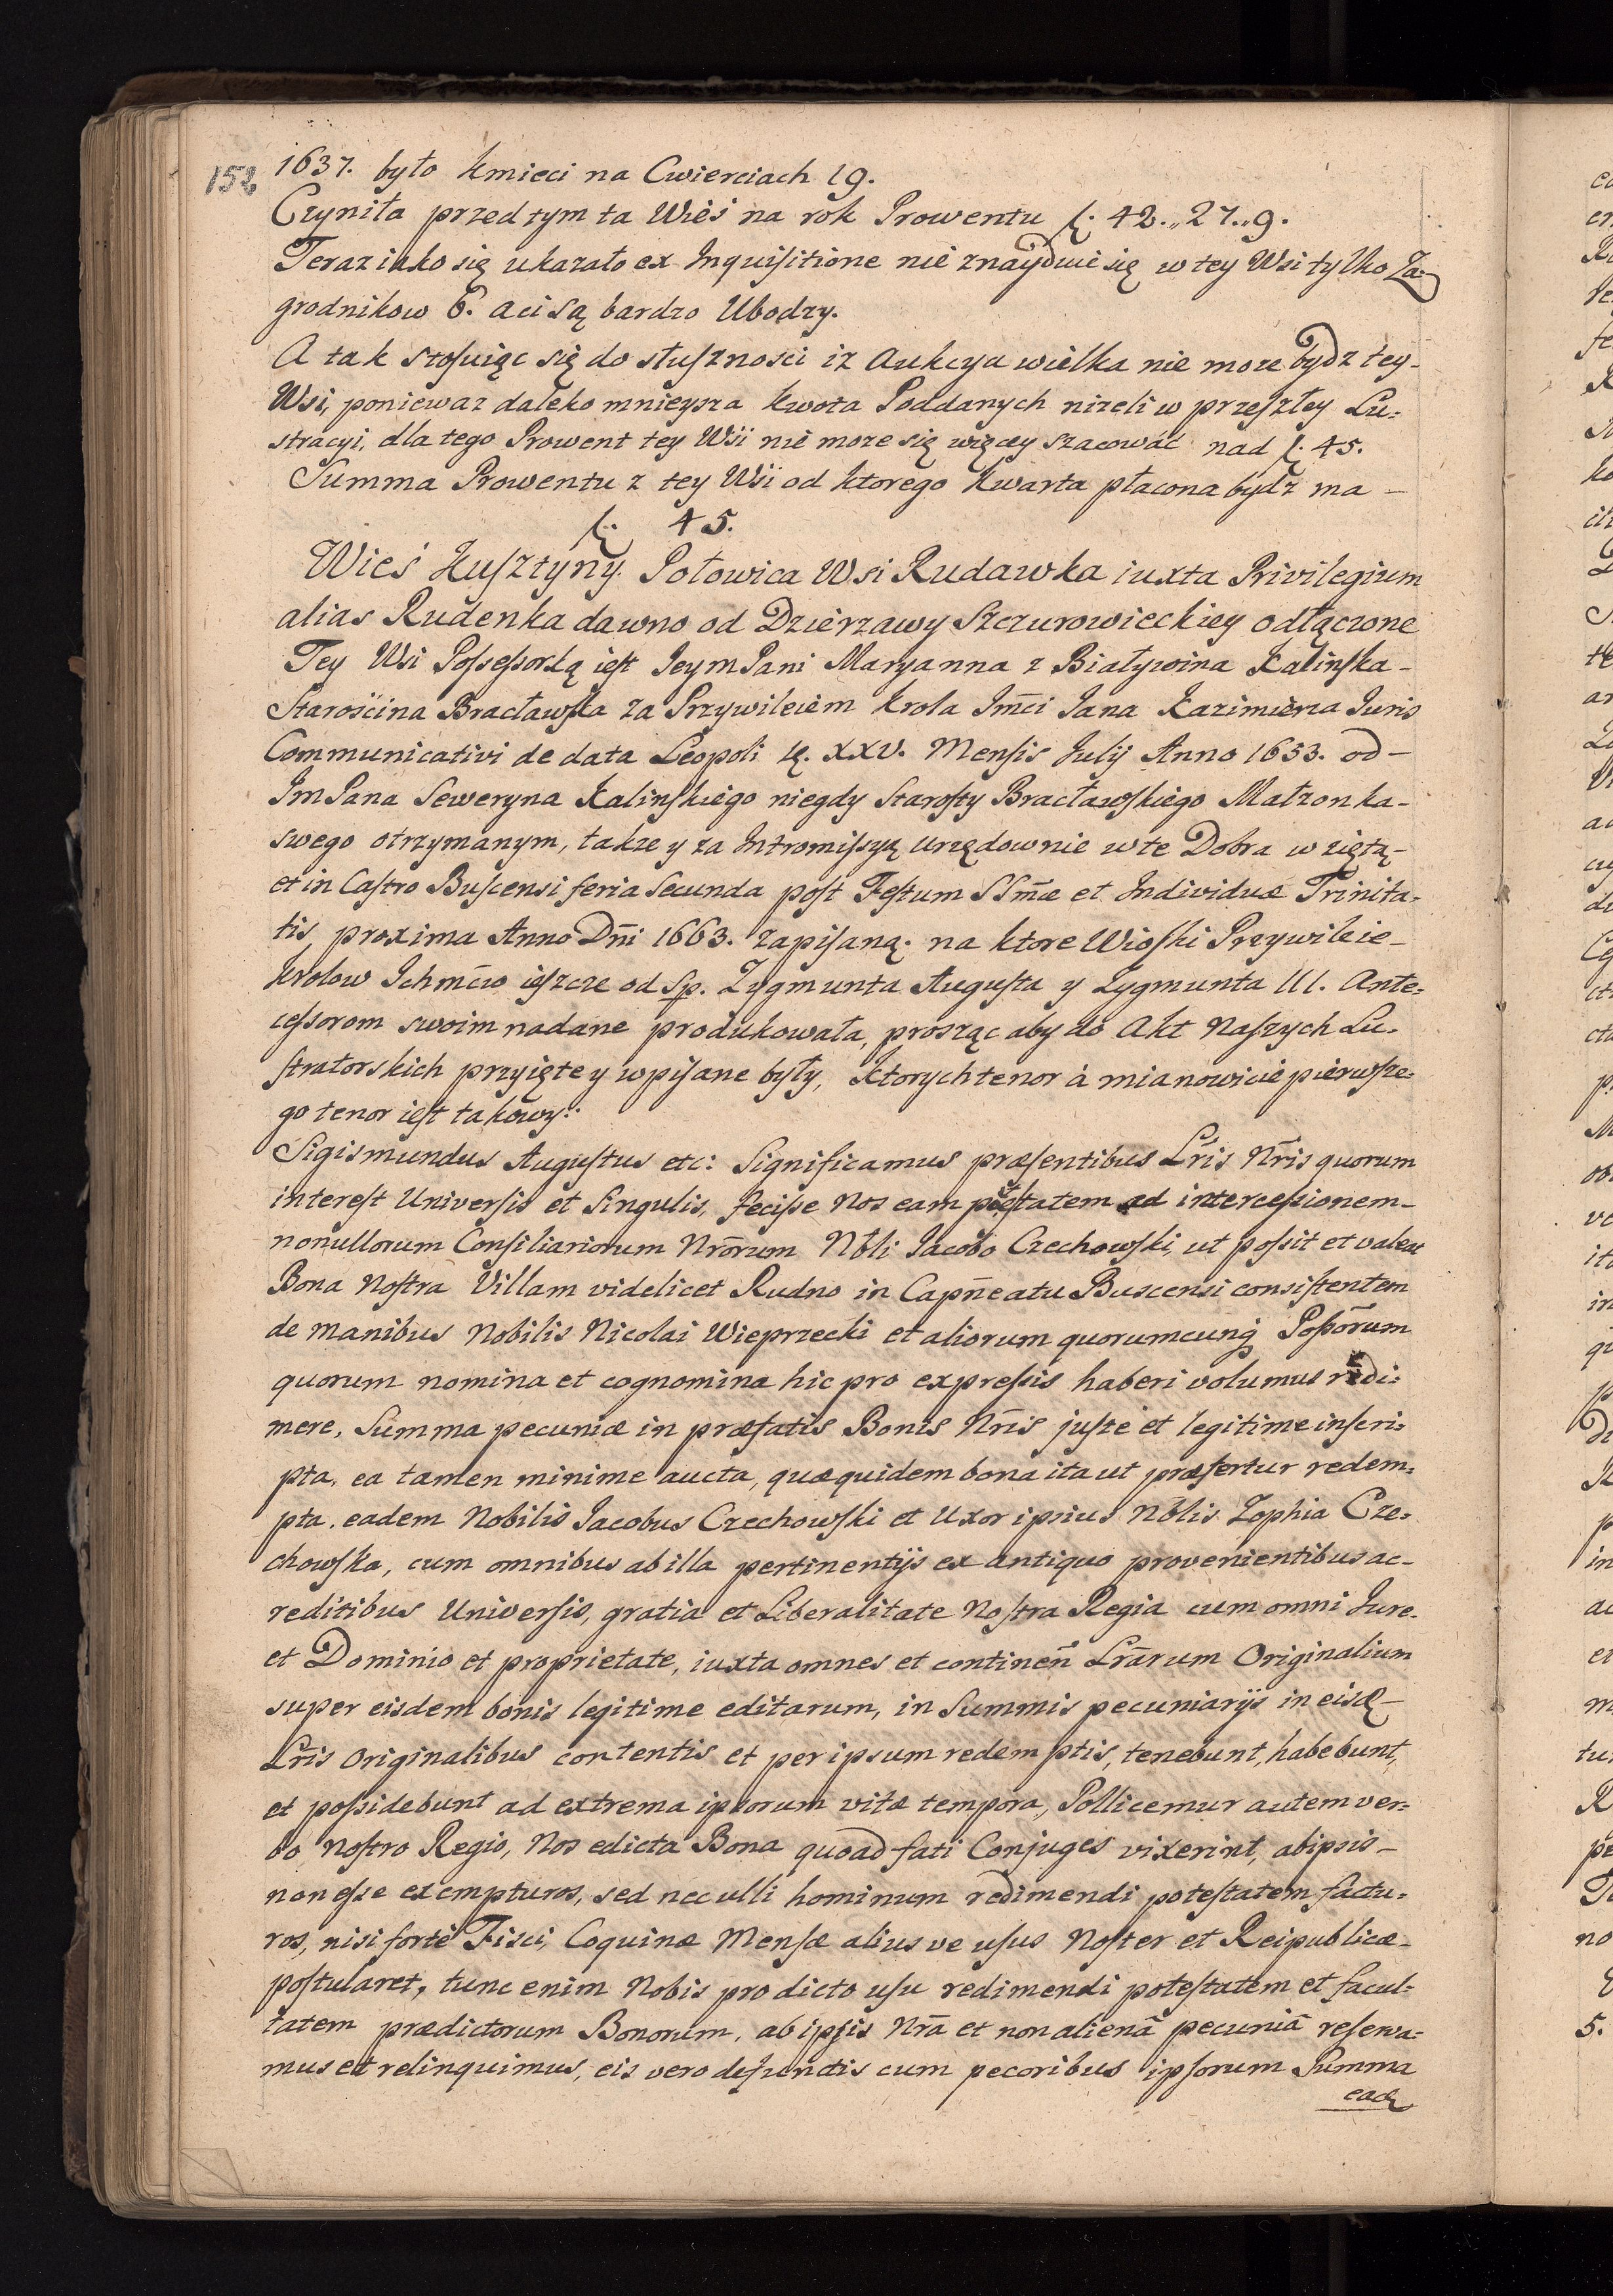 152
1637. było kmieci na Cwierciach 19.
Czyniła przed tym ta Wieś na rok Prowentu f. 42.„27.„9.
Teraz iako się ukazało ex Inquisitione nie znayduie się w tey Wsi tylko Za-
grodnikow 6. a ci są bardzo Ubodzy.
A tak stosuiąc się do słuszności iz Aukcya wielka nie moze bydz tey-
Wsi, poniewaz daleko mnieysza kwota Poddanych nizeli w przeszłey Lu=
stracyi, dla tego Prowent tey Wsi nie moze się więcey szacować nad f. 45.
Summa Prowentu z tey Wsi od ktorego Kwarta płacona bydz ma -
f. 45.
Wieś Kusztyny. Połowica Wsi Rudawka iuxta Privilegium
alias Rudenka dawno od Dzierzawy Szczurowieckiey odłączone
Tey Wsi Possessorką iest JeymPani Maryanna z Białywina Kalinska-
Starościna Bracławska za Przywileiem Krola Jm̃ci Jana Kazimierza Juris
Communicativi de data Leopoli XXV. Mensis Julij Anno 1653. od-
ImPana Seweryna Kalinskiego niegdy Starosty Bracławskiego Małzonka-
swego otrzymanym, takze y za Intromissyą urzędownie w te Dobra wziętą-
et in Castro Buscensi feria Secunda post Festum SSm̃æ et Individuæ Trinita-
tis proxima Anno Dñi 1663. zapisaną. na ktore Wioski Przywileie-
Krolow Ichmc̃iow ieszcze od Sp. Zygmunta Augusta y Zygmunta III. Ante=
cessorom swoim nadane produkowała, prosząc aby do Akt Naszych Lu-
stratorskich przyięte y wpisane były, Ktorych tenor à mianowicie pierwsze=
go tenor iest takowy:
Sigismundus Augustus etc: Significamus præsentibus Lr̃is Nr̃is quorum
interest Universis et Singulis, fecisse Nos eam ptestatem ad intercessionem-
nonullorum Consiliariorum Nr̃orum Nb̃li Jacobo Czechowski, ut possit et valeat
Bona Nostra Villam videlicet Rudno in Capñeatu Buscensi consistentem
de manibus Nobilis Nicolai Wieprzecki et aliorum quorumcunq̃ Possõrum
quorum nomina et cognomina hic pro expressis haberi volumus redi=
mere, Summa pecuniæ in præfatis Bonis Nr̃is juste et legitime inscri=
pta, ea tamen minime aucta, quæ quidem bona ita ut præfertur redem=
pta, eadem Nobilis Jacobus Czechowski et Uxor ipsius Nb̃lis Zophia Cze=
chowska, cum omnibus ab illa pertinentijs ex antiquo provenientibus ac-
reditibus Universis, gratia et Liberalitate Nostra Regia cum omni Jure-
et Dominio et proprietate, iuxta omnes et continen̄ Lr̃arum Originalium
super eisdem bonis legitime editarum, in Summis pecuniarijs in eisd̃-
Lr̃is Originalibus contentis et per ipsum redemptis, tenebunt, habebunt,
et possidebunt ad extrema ipsorum vitæ tempora, Pollicemur autem ver=
bo Nostro Regio, Nos edicta Bona quoad fati Conjuges vixerint, ab ipsis-
non esse exempturos, sed nec ulli hominum redimendi potestatem factu=
ros, nisi forte Fisci, Coquinæ Mensæ alius ve usus Noster et Reipublicæ-
postularet, tunc enim Nobis pro dicto usu redimendi potestatem et facul=
tatem prædictorum Bonorum, ab ipsis Nr̃a et non alienâ pecuniâ reserva=
mus et relinquimus, eis vero defunctis cum pecoribus ipsorum Summa
ead̃